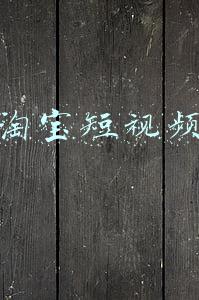 淘宝短视频